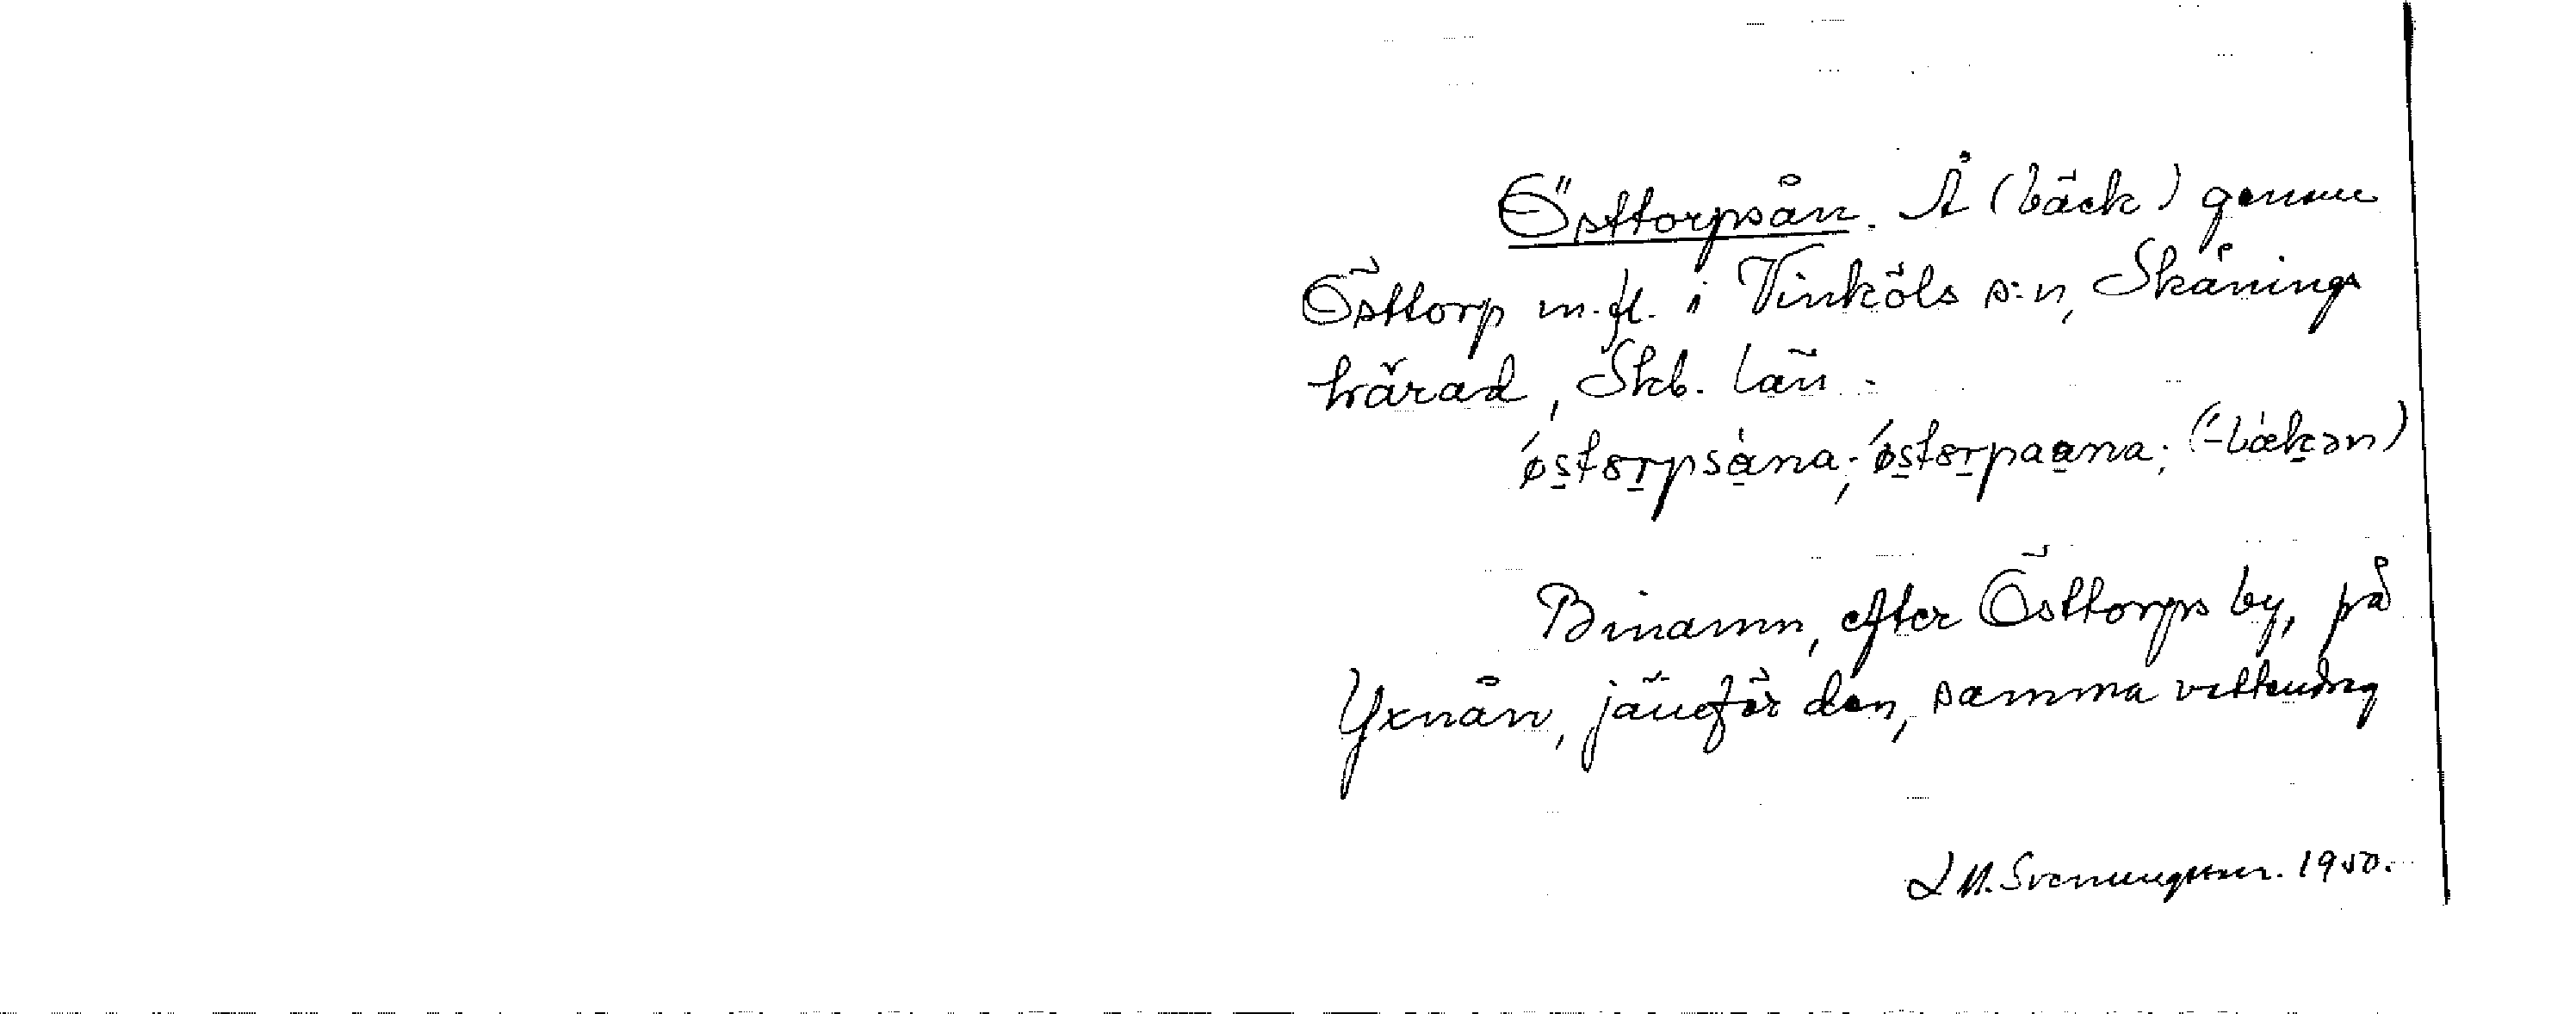 Östtorpsån. Å (bäck) genom
Östtorp m.fl. i Vinköls s:n, Skånings
härad, Skb. län.
Binamn, efter Östtorps by, på
Yxnån, jämför den, samma vattendrag
1950.